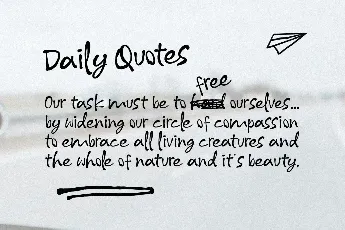 Daily Quotes
free
Our task must be to ourselves...
by widening our circle of compassion
to embrace all living creatures and
the whole of nature and it's beauty.